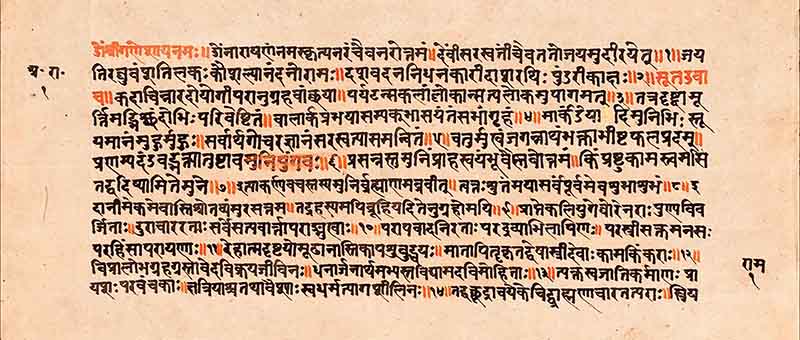 ॐश्रीगणेशायनमः॥ॐनारायणंनमस्कृत्यनरंचैवनरोत्तमं॥देवींसरस्वतींचैवततोजयमुदीरयेत्॥१॥जय
अ॰ रा॰
१
तिरघुवंशतिलकः कौशल्यानंदनोरामः॥दशवदननिधनकारीदाशरथिः पुंडरीकाक्षः॥२॥सूतउवा
च॥कदाचिन्नारदोयोगीपरानुग्रहवांछया॥पर्यटन्सकलाँल्लोकान्सत्यलोकमुपागमत्॥३॥तत्रदृष्ट्वामू
र्त्तिमद्भिश्छंदोभिः परिवेष्टितं॥वालार्कप्रभयासम्यक्भासयंतंसभागृहं॥४॥मार्कंडेया दिमुनिभिः स्तू
यमानंमुहुर्मुहुः॥सर्वार्थगोचरज्ञानंसरस्वत्यासमन्वितं॥५॥चतुर्मुखंजगन्नाथंभक्ताभीष्टफलप्रदम्॥
प्रणम्यदंडवद्भक्त्यातुष्टावमुनिपुंगवः॥६॥प्रसन्नस्तंमुनिंप्राहस्वयंभूर्वैष्णवोत्तमं॥किंप्रष्टुकामस्त्वमसि
तद्वदिष्यामितेमुने॥७॥इत्याकर्ण्यवचस्तस्यमुनिर्ब्रह्माणमब्रवीत्॥त्वत्तःश्रुतंमयासर्वंपूर्वमेवशुभाशुभं॥८॥इ
दानीमेकमेवास्तिश्रोतव्यंसुरसत्तम॥तद्रहस्यमपिब्रूहियदितेनुग्रहोमयि॥९॥प्राप्तेकलियुगेघोरेनराः पुण्यविव
र्जिताः॥दुराचाररताः सर्वेसत्यवार्त्तापराङ्मुखाः॥१०॥परापवादनिरताः परद्रव्याभिलाषिणः॥परस्त्रीसक्तमनसः
परहिंसापरायणाः॥११॥देहात्मदृष्टयोमूढानास्तिकापशुबुद्धयः॥मातापितृकृतद्वेषास्त्रीदेवाः कामकिंकराः॥१२॥
विप्रालोभग्रहग्रस्तावेदविक्रयजीविनः॥धनार्जनार्थमभ्यस्तविद्यामदविमोहिताः॥१३॥त्यक्तस्वजातिकर्माणः प्रा
यशः परवंचकाः॥क्षत्रियाश्चतथावैश्याः स्वधर्मत्यागशीलिनः॥१४॥तद्वच्छूद्राश्चयेकेचिद्ब्राह्मणाचारतत्पराः॥स्त्रिय
राम
१